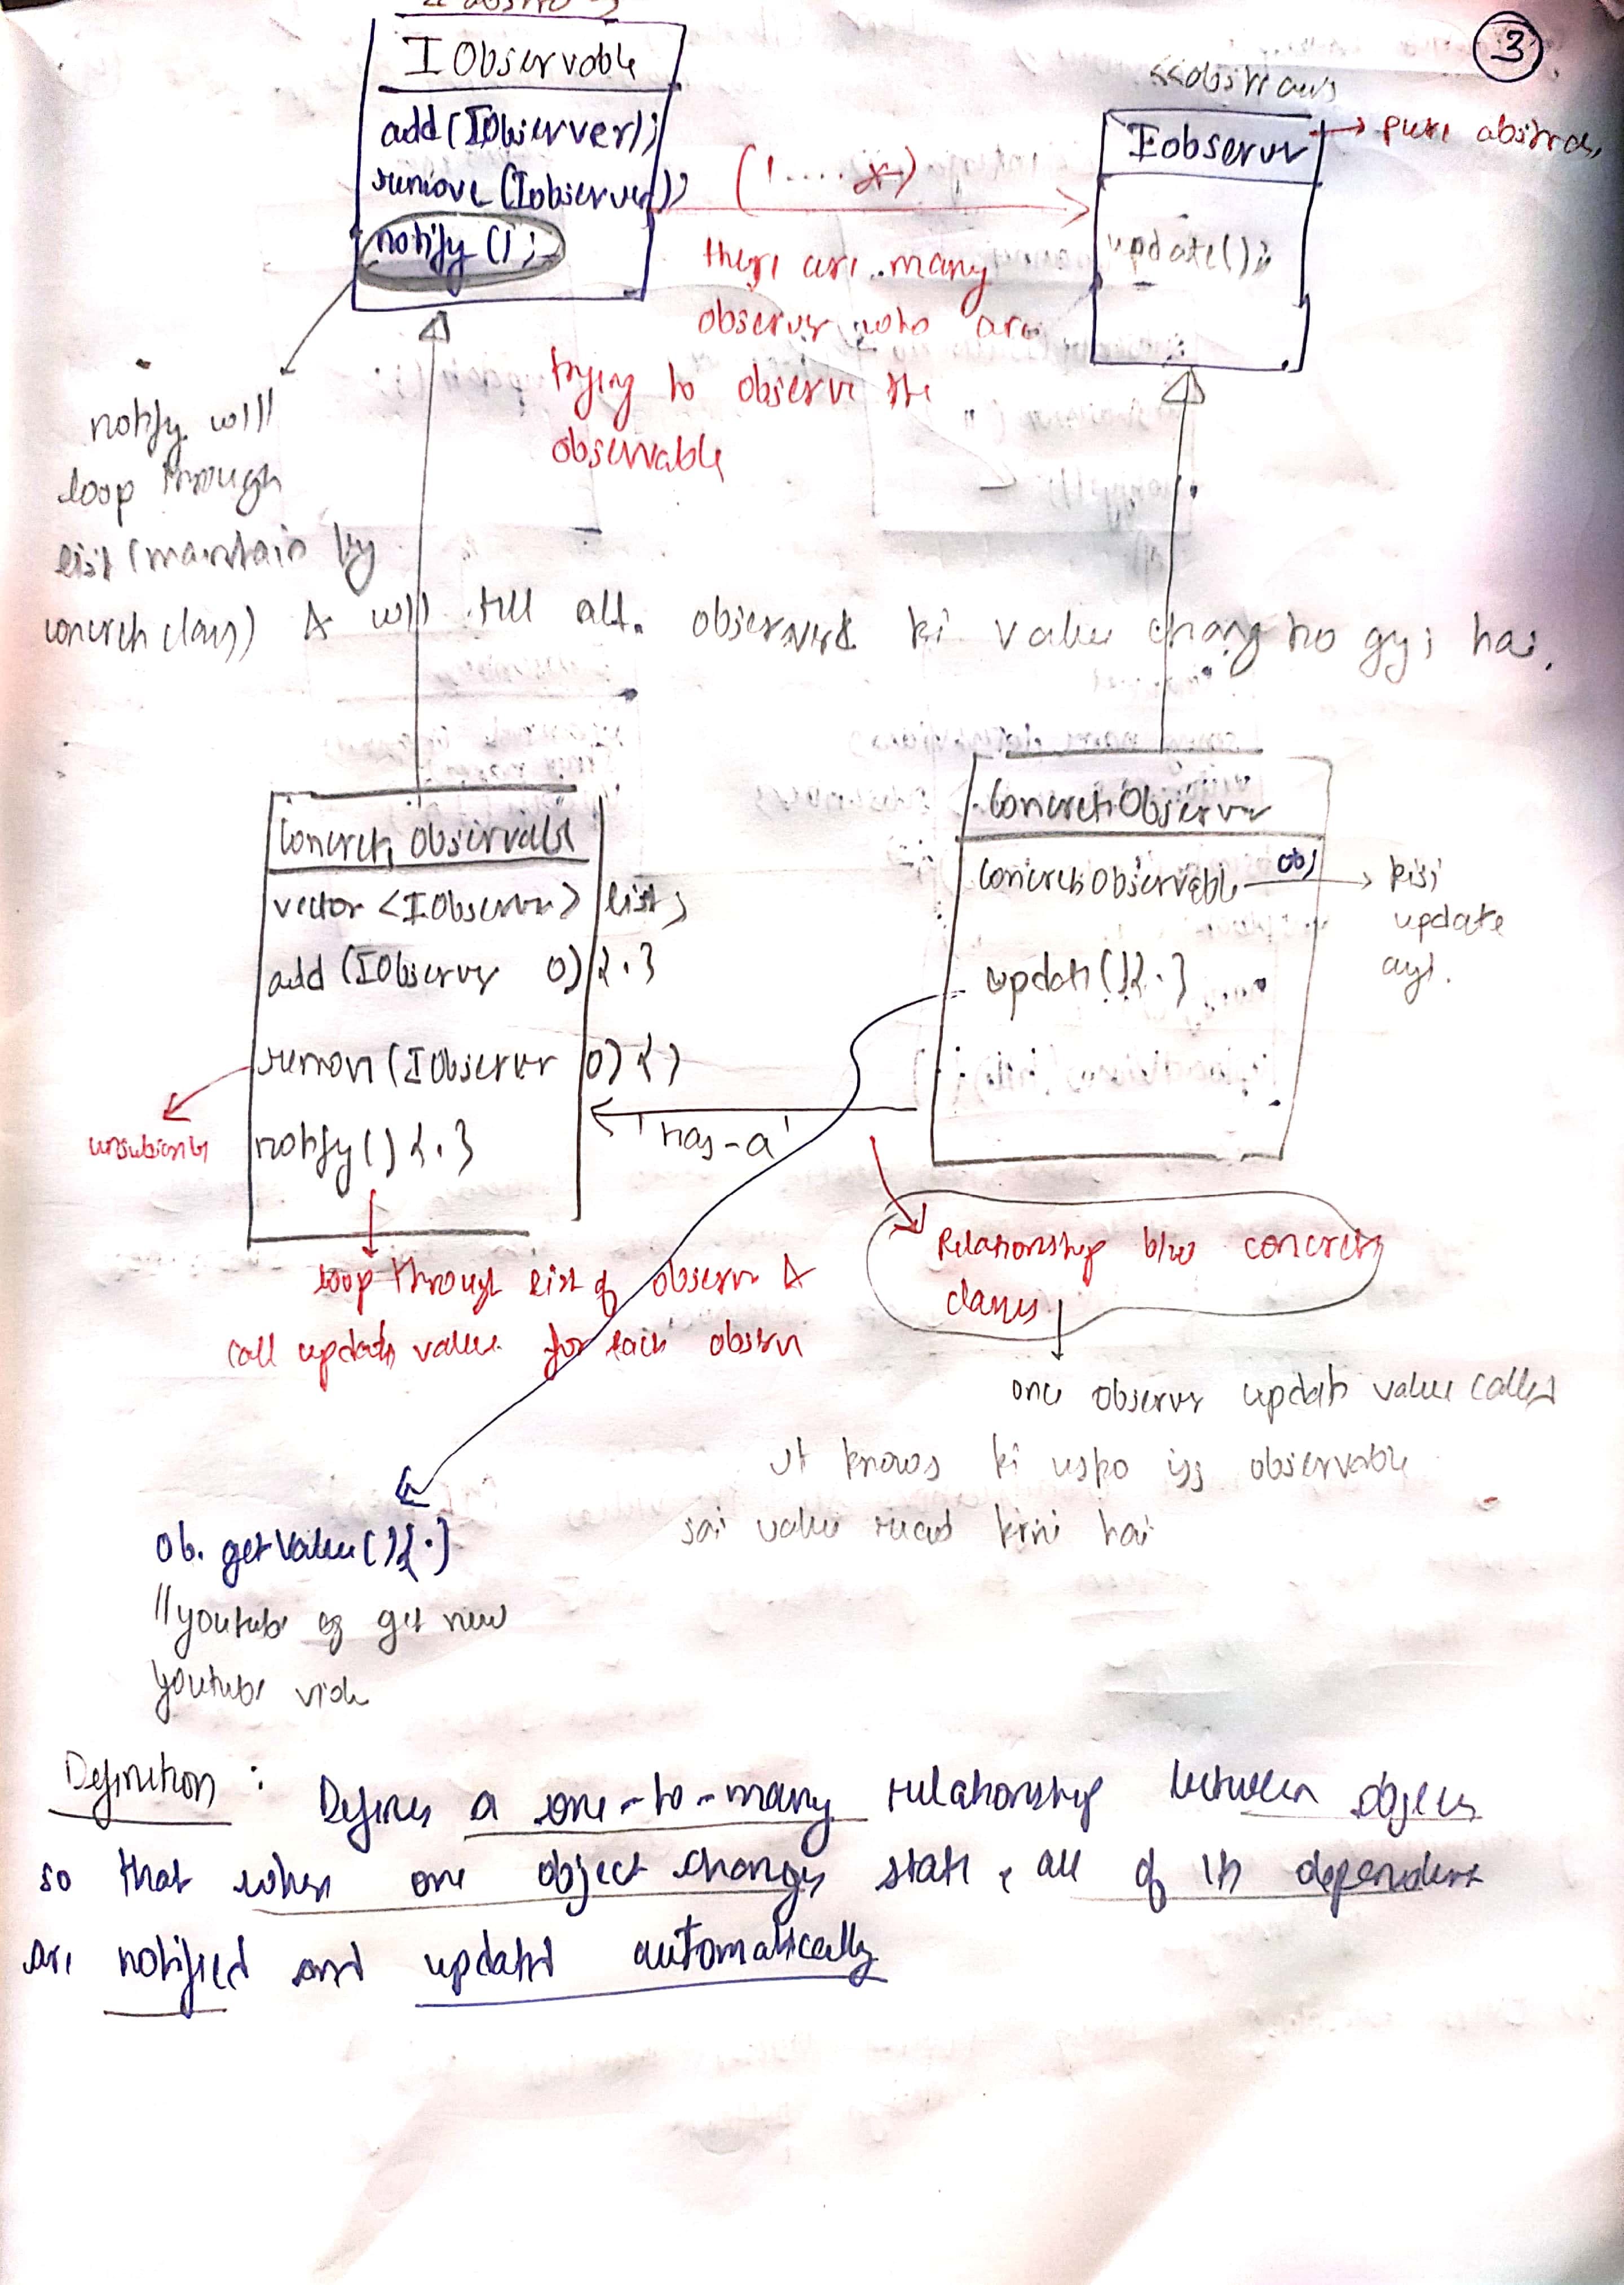 3
I Observable
add (IObserver);
remove (Iobserver);
notify ();
(1....*)
<<abstract>>
Iobserver
pure abstract
update();
there are many
observer who are
trying to observe the
observable
notify will
loop through
list (maintain by
concrete class) & will tell all observers ki value change ho gyi hai.
Concrete Observable
vector <IObserver> list;
add (IObserver o) {.}
remove (IObserver o) { }
notify () {.}
unsubscribe
loop through list of observer &
call update value for each observer
'has-a'
Concrete Observer
Concrete Observable obj
update () {.}
kisi
update
aye.
Relationship b/w concrete
classes
once observer update value called
it knows ki usko iss observable
sai value read krni hai
ob. getValue () {.}
//youtube eg get new
youtube video
Definition : Defines a one-to-many relationship between objects
so that when one object changes state, all of its dependent
are notified and updated automatically